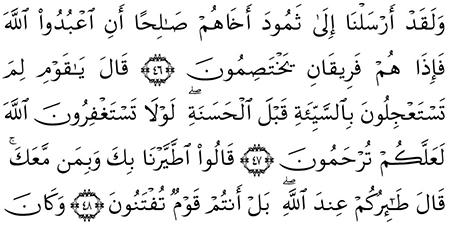 وَلَقَدْ أَرْسَلْنَا إِلَىٰ ثَمُودَ أَخَاهُمْ صَٰلِحًا أَنِ ٱعْبُدُوا۟ ٱللَّهَ
فَإِذَا هُمْ فَرِيقَانِ يَخْتَصِمُونَ ﴿٤٦﴾ قَالَ يَٰقَوْمِ لِمَ
تَسْتَعْجِلُونَ بِٱلسَّيِّئَةِ قَبْلَ ٱلْحَسَنَةِ ۖ لَوْلَا تَسْتَغْفِرُونَ ٱللَّهَ
لَعَلَّكُمْ تُرْحَمُونَ ﴿٤٧﴾ قَالُوا۟ ٱطَّيَّرْنَا بِكَ وَبِمَن مَّعَكَ ۚ
قَالَ طَٰٓئِرُكُمْ عِندَ ٱللَّهِ ۖ بَلْ أَنتُمْ قَوْمٌ تُفْتَنُونَ ﴿٤٨﴾ وَكَانَ